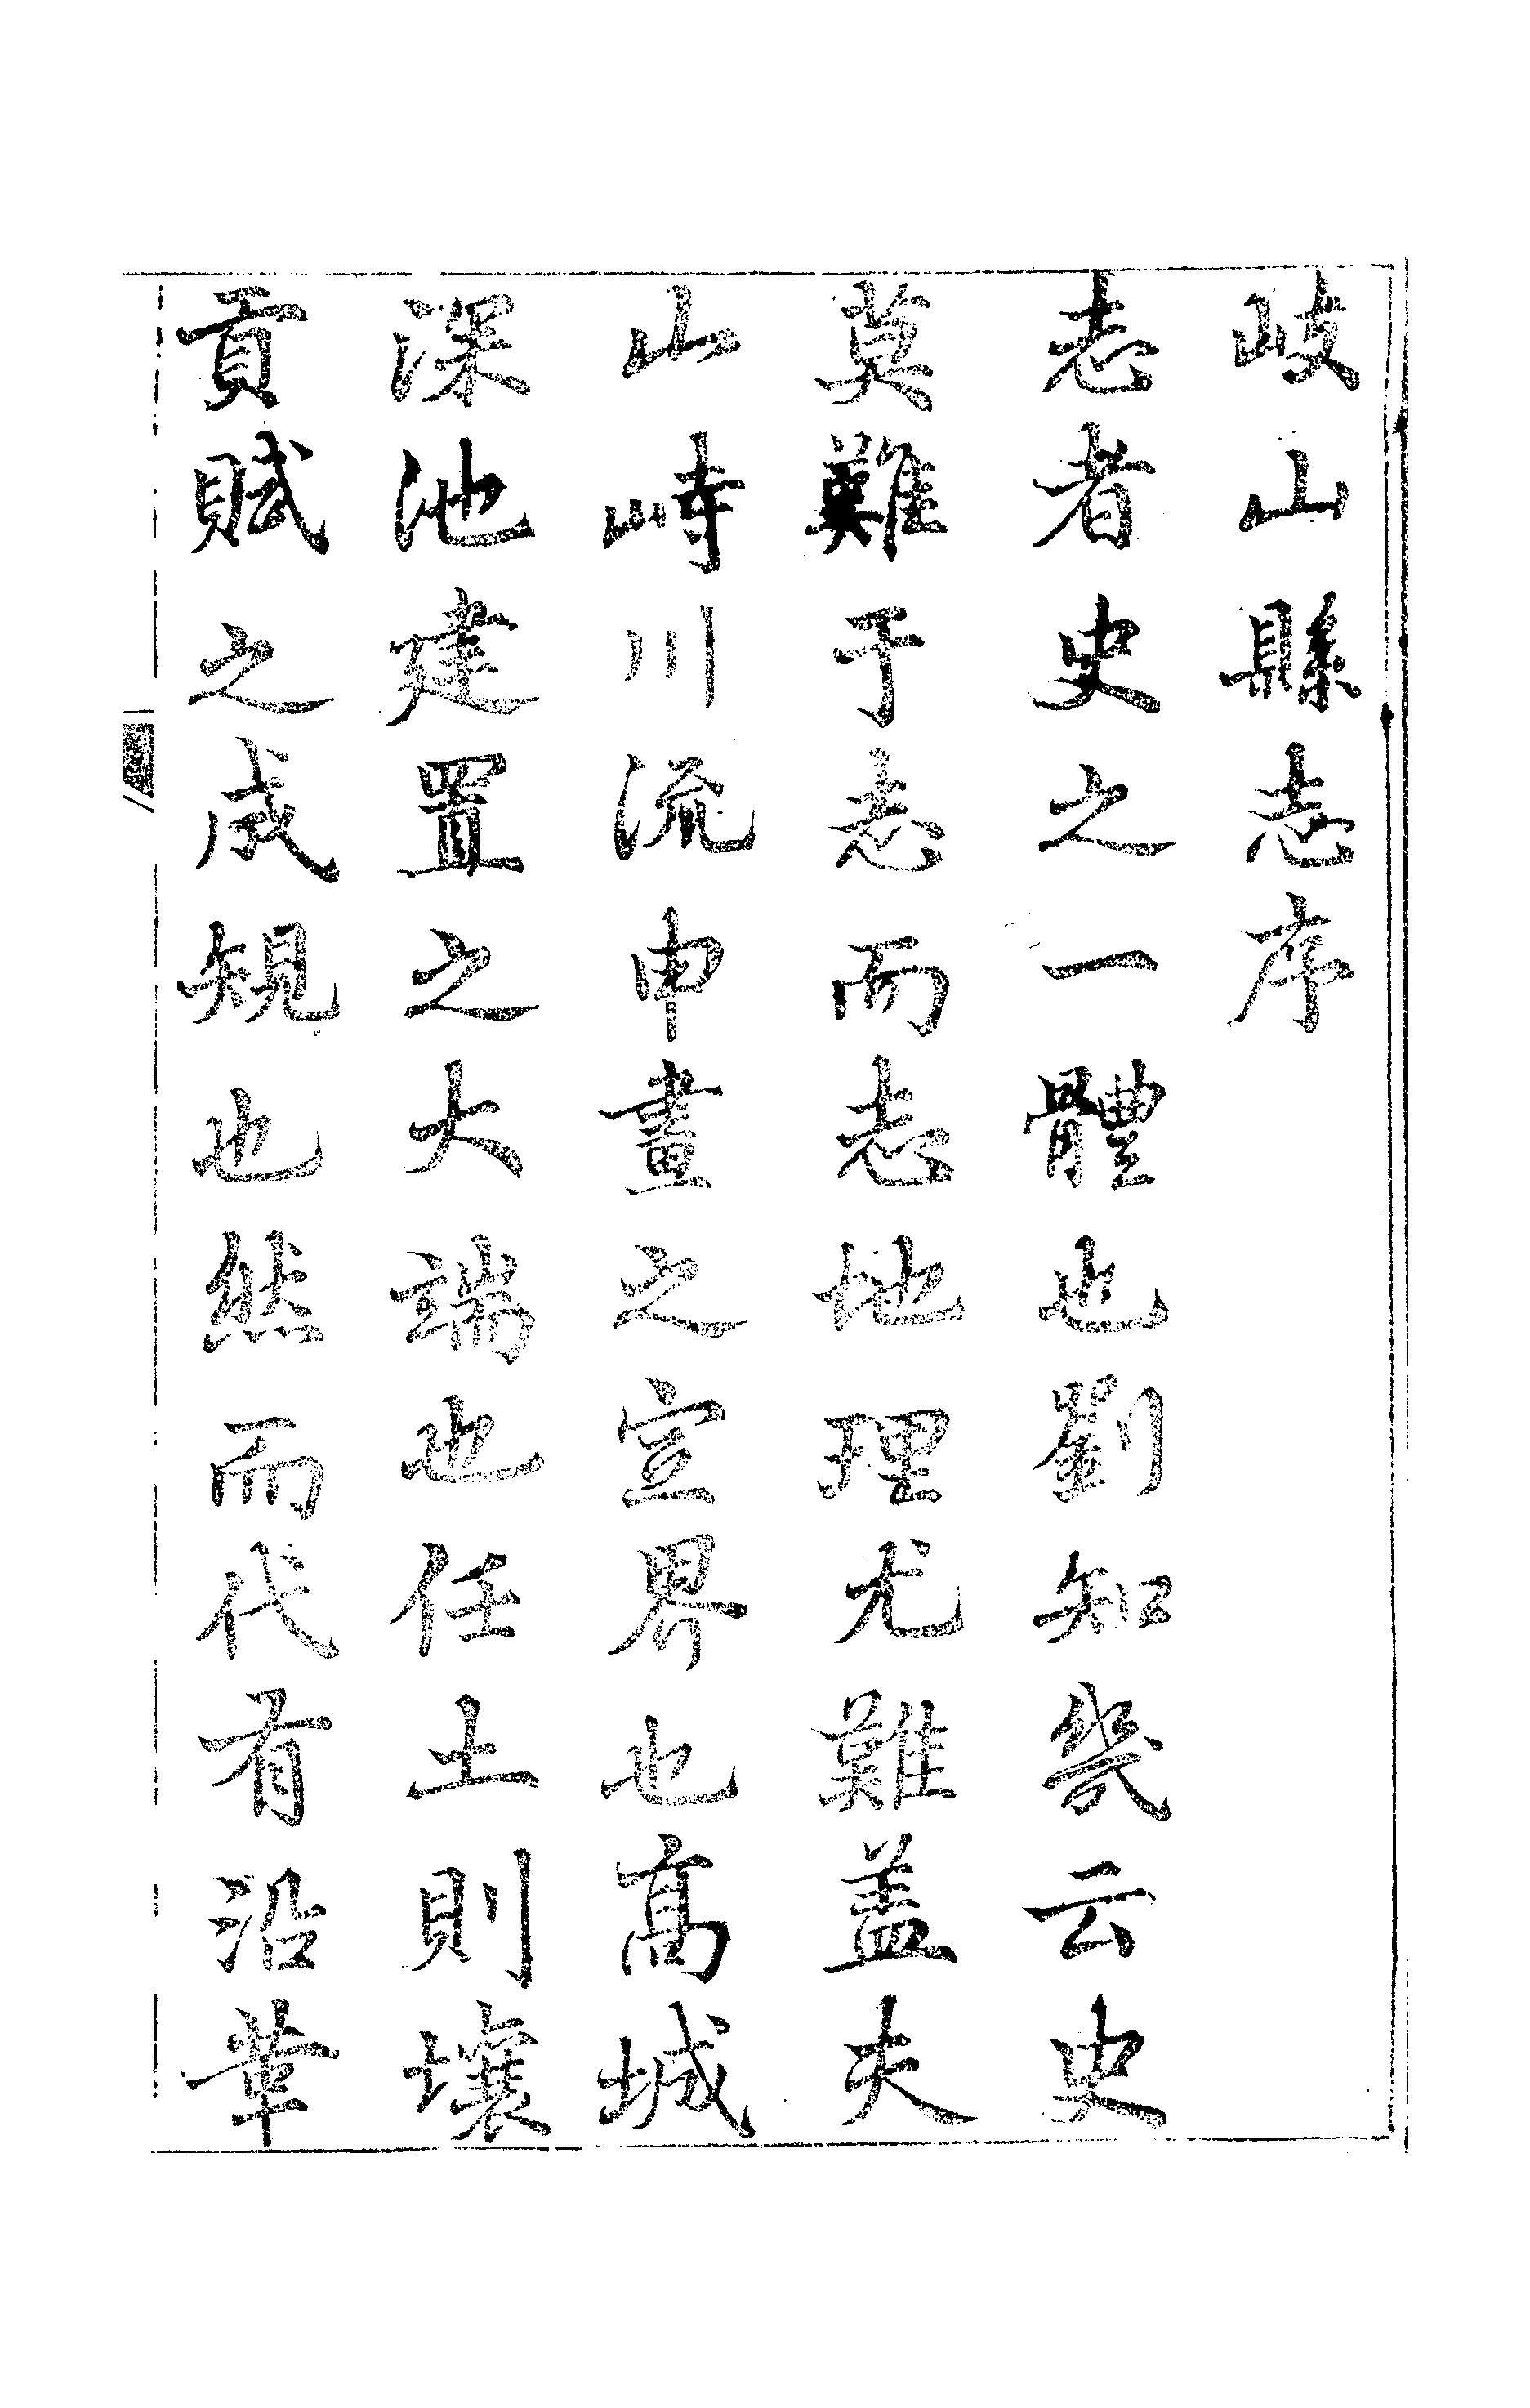 岐山縣志序
志者史之一體也劉知幾云史
莫難于志而志地理尤難盖夫
山峙川流申畫之宣界也高城
深池建置之大端也任土則壤
貢賦之成規也然而代有沿革